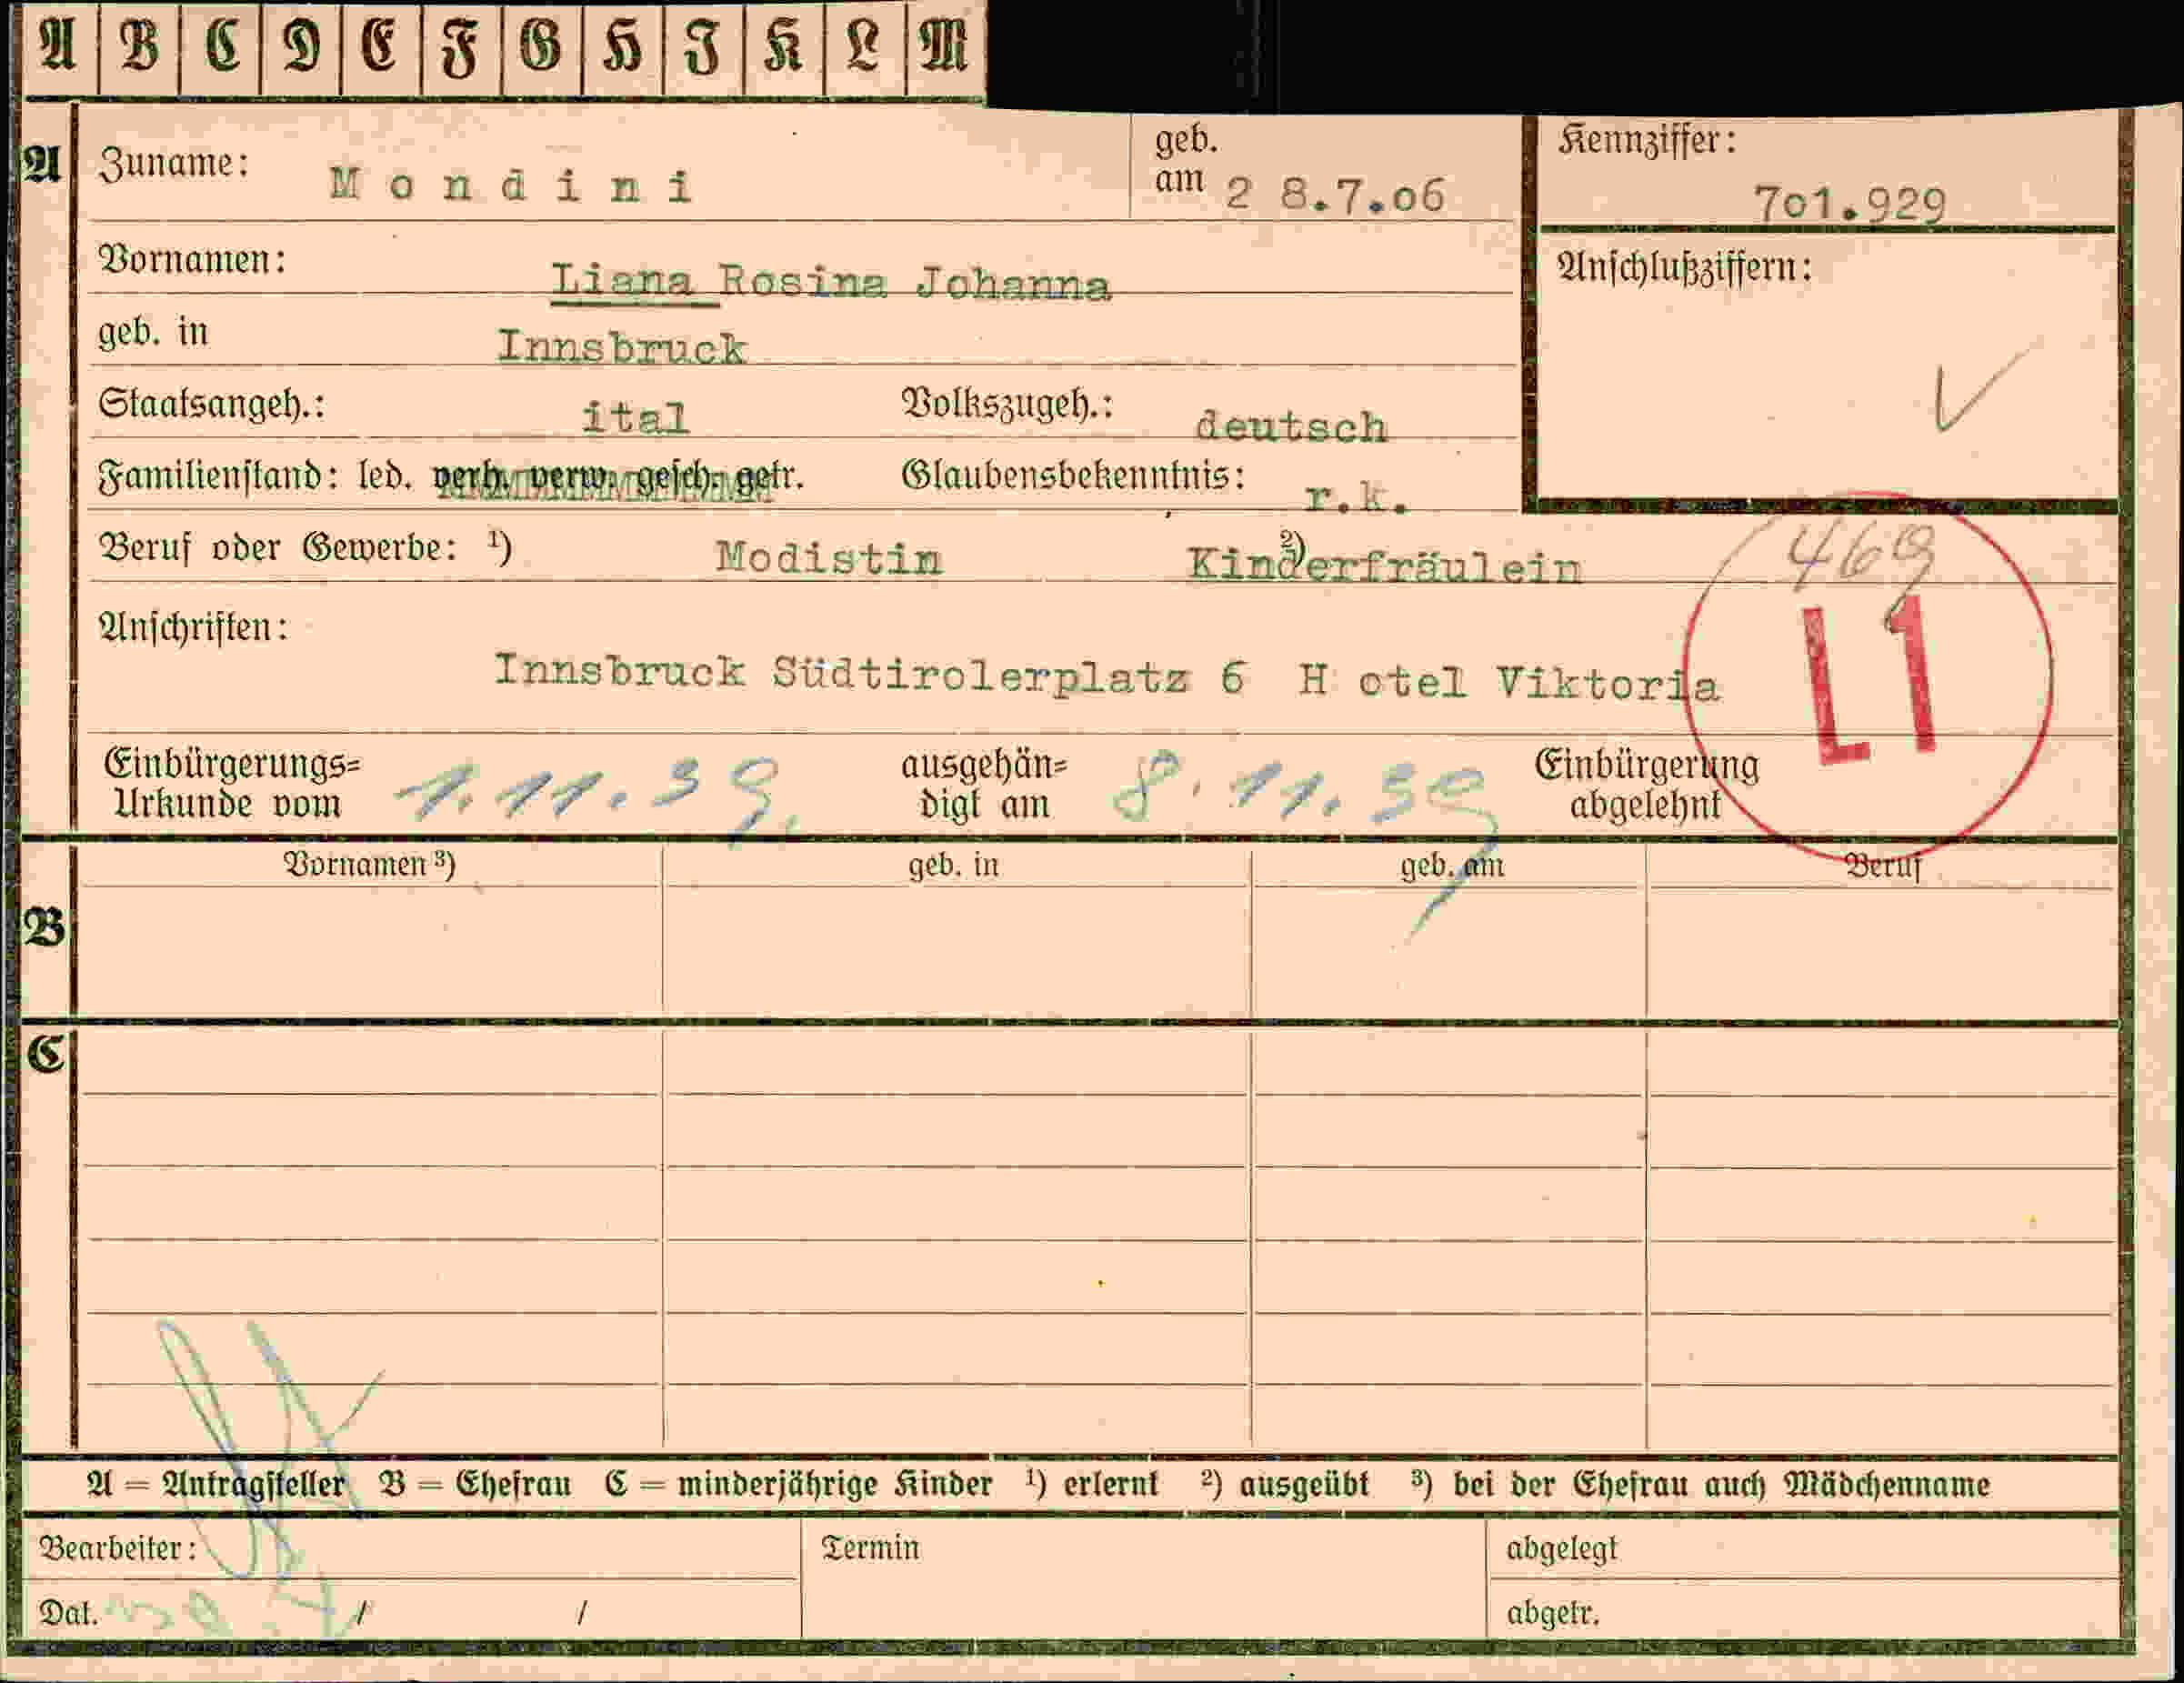 A B C D E F G H J K L M
A Zuname: Mondini geb. am 28.7.06 Kennziffer: 701.929
Vornamen: Liana Rosina Johanna Anschlußziffern:
geb. in Innsbruck
Staatsangeh.: ital Volkszugeh.: deutsch
Familienstand: led. verh. verw. gesch. getr. Glaubensbekenntnis: r.k.
Beruf oder Gewerbe: ¹) Modistin ²) Kinderfräulein 469
L1
Anschriften:
Innsbruck Südtirolerplatz 6 Hotel Viktoria
Einbürgerungs= ausgehän= Einbürgerung
Urkunde vom 1.11.39. digt am 8.11.39 abgelehnt
Vornamen ³) geb. in geb. am Beruf
B
C
A = Antragsteller B = Ehefrau C = minderjährige Kinder ¹) erlernt ²) ausgeübt ³) bei der Ehefrau auch Mädchenname
Bearbeiter: Termin abgelegt
Dat. / / abgetr.